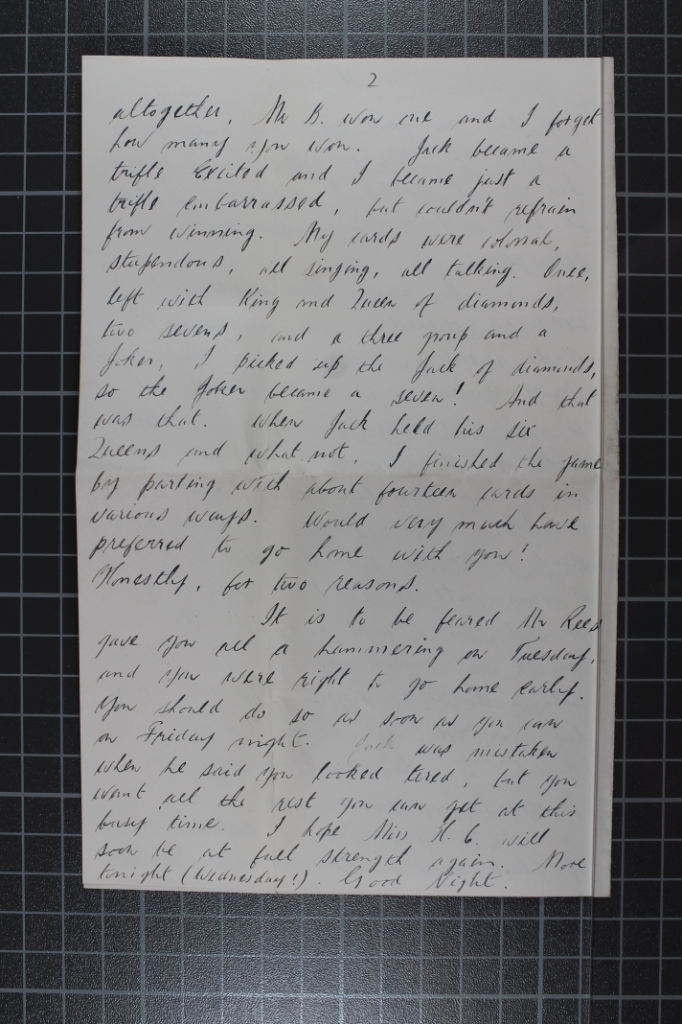 2
altogether, Mr B. won one and I forget
how many you won. Jack became a
trifle excited and I became just a
trifle embarrassed, but couldn't refrain
from winning. My cards were colossal,
stupendous, all singing, all talking. Once,
left with King and Queen of diamonds,
two sevens, and a three group and a
Joker, I picked up the Jack of diamonds,
so the Joker became a seven! And that
was that. When Jack held his six
Queens and what not, I finished the game
by parting with about fourteen cards in
various ways. Would very much have
preferred to go home with you!
Honestly, for two reasons.
It is to be feared Mr Rees
gave you all a hammering on Tuesday,
and you were right to go home early.
You should do so as soon as you can
on Friday night. Jack was mistaken
when he said you looked tired, but you
want all the rest you can get at this
busy time. I hope Miss H. C. will
soon be at full strength again. More
tonight (Wednesday!). Good Night.